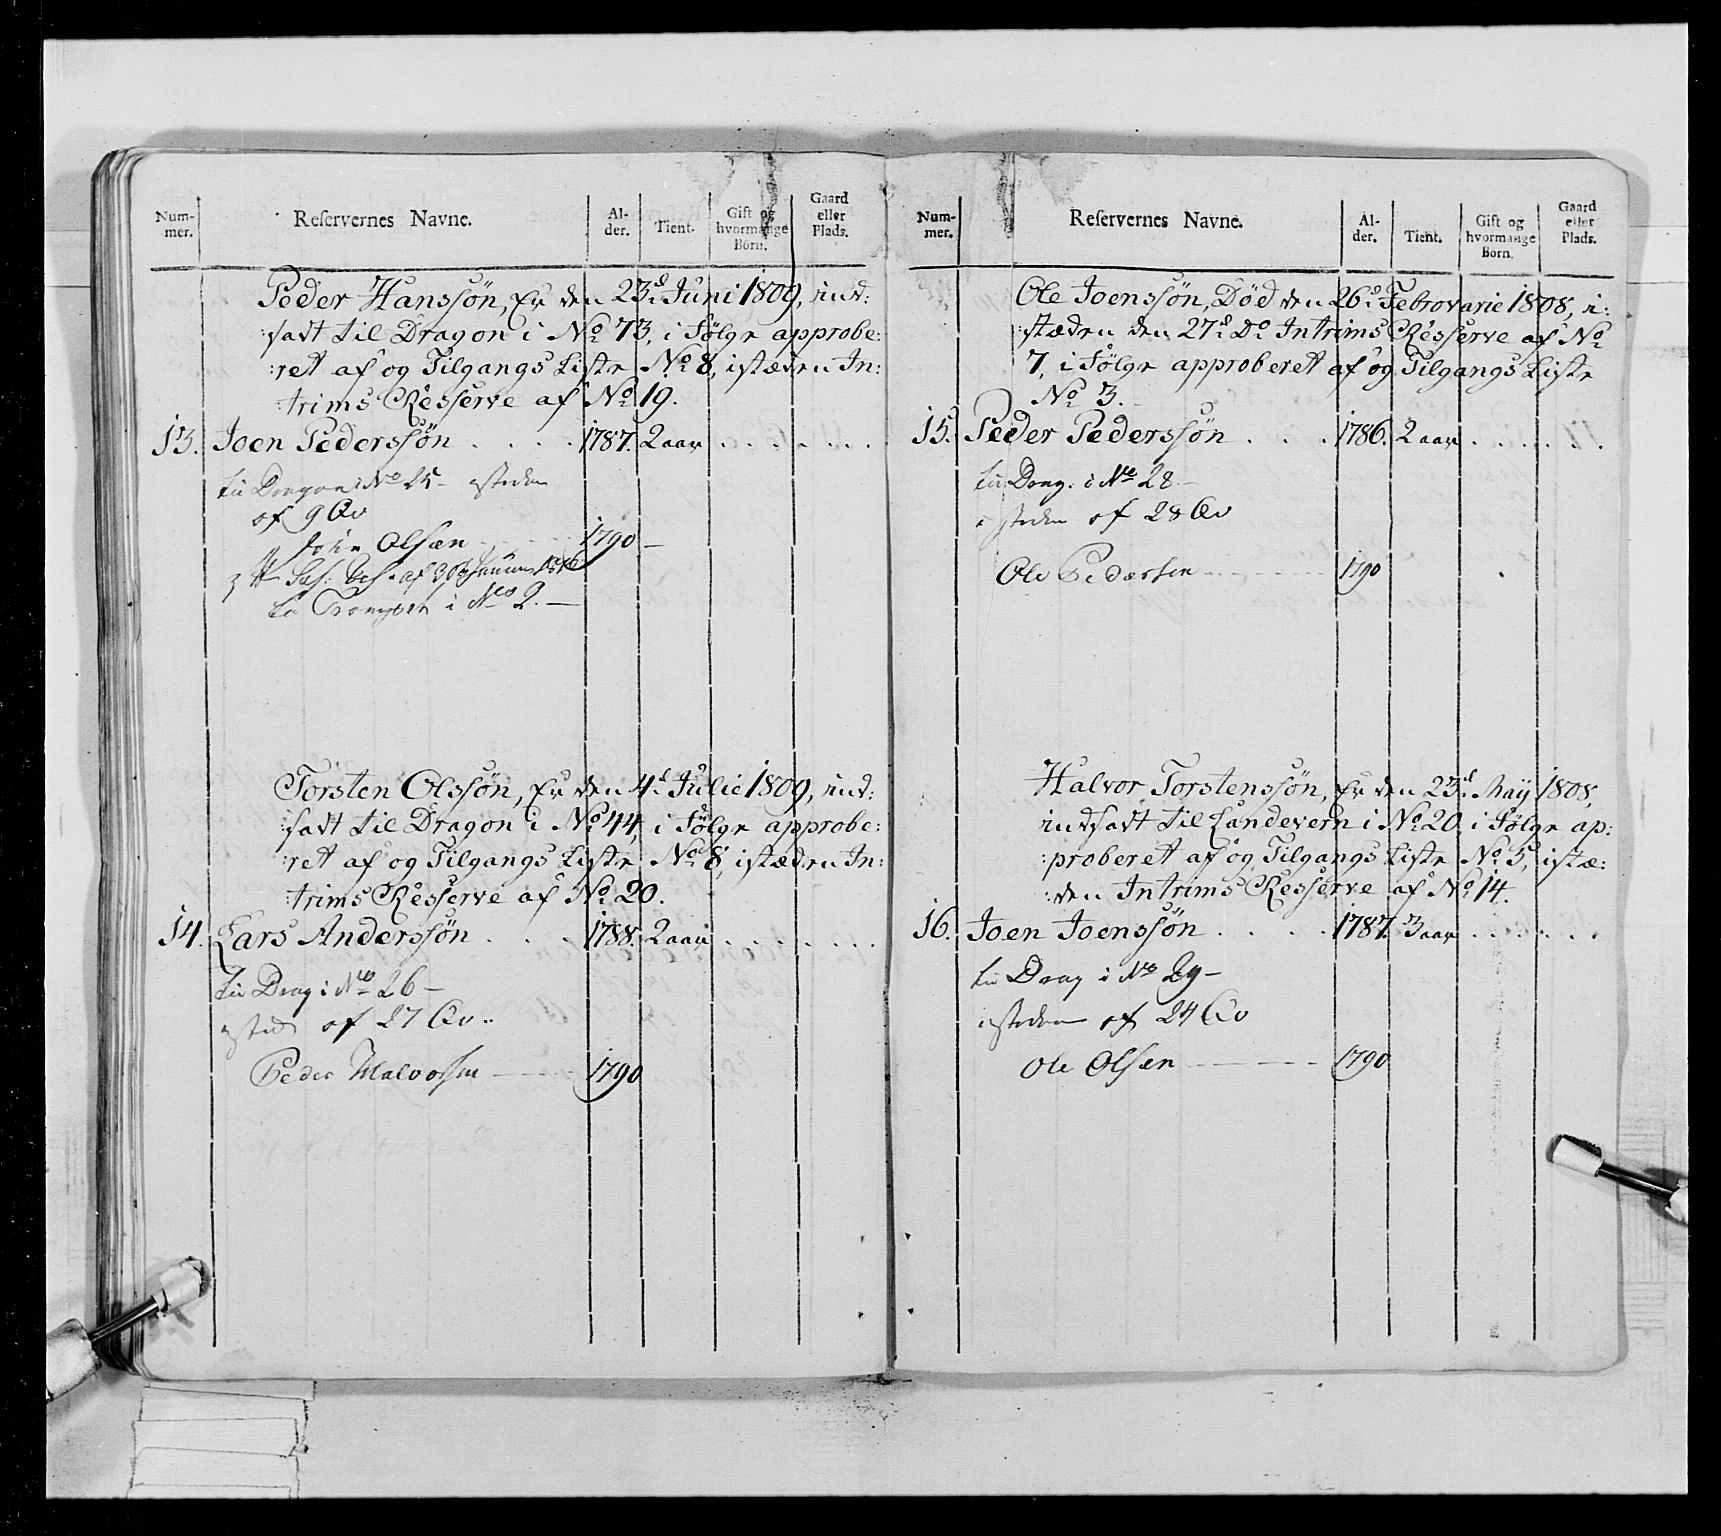 Num-
mer.
Reservernes Navne.
Al-
der.
Tient.
Gift og
hvormange
Börn.
Gaard
eller
Plads.
Peder Hanssøn, Er den 23d Juni 1809, ind:
:sadt til Dragon i No 73, i Følge approbe:
:ret af og Tilgangs Liste No 8, istæden In:
:trims Resserve af No 19.
13. Joen Pederssøn . . . . 1787. 2 aar . . . . . . .
til Dragon i No 25 - isteden
af 9 Qv
John Olsæn 1790 -
til Trompet i No 2. -
Torsten Olssøn, Er den 4d Julie 1809, ind:
:sadt til Dragon i No 44, i Følge approbe:
:ret af og Tilgangs Liste No 8, istæden In:
:trims Resserve af No 20.
14. Lars Anderssøn . . . . 1788. 2 aar . . . . . . .
til Drag i No 26 -
isted af 27 Qv.
Peder Halvorsen 1790
Num-
mer.
Reservernes Navne.
Al-
der.
Tient.
Gift og
hvormange
Börn.
Gaard
eller
Plads.
Ole Joenssøn, Død den 26d Februarie 1808, i:
:stæden den 27d Do Intrims Resserve af No
7, i Følge approberet af og Tilgangs Liste
No 3.
15. Peder Pederssøn . . . . 1786. 2 aar . . . . . .
til Drag. i No 28 -
isteden af 28 Qv
Ole Pedersen 1790
Halvor Torstenssøn, Er den 23d May 1808,
indsadt til Landevern i No 20, i Følge ap:
:proberet af og Tilgangs Liste No 5, istæ:
:den Intrims Resserve af No 14.
16. Joen Joenssøn . . . . 1787. 3 aar . . . . . .
til Drag i No 29 -
isteden af 24 Qv
Ole Olsen 1790